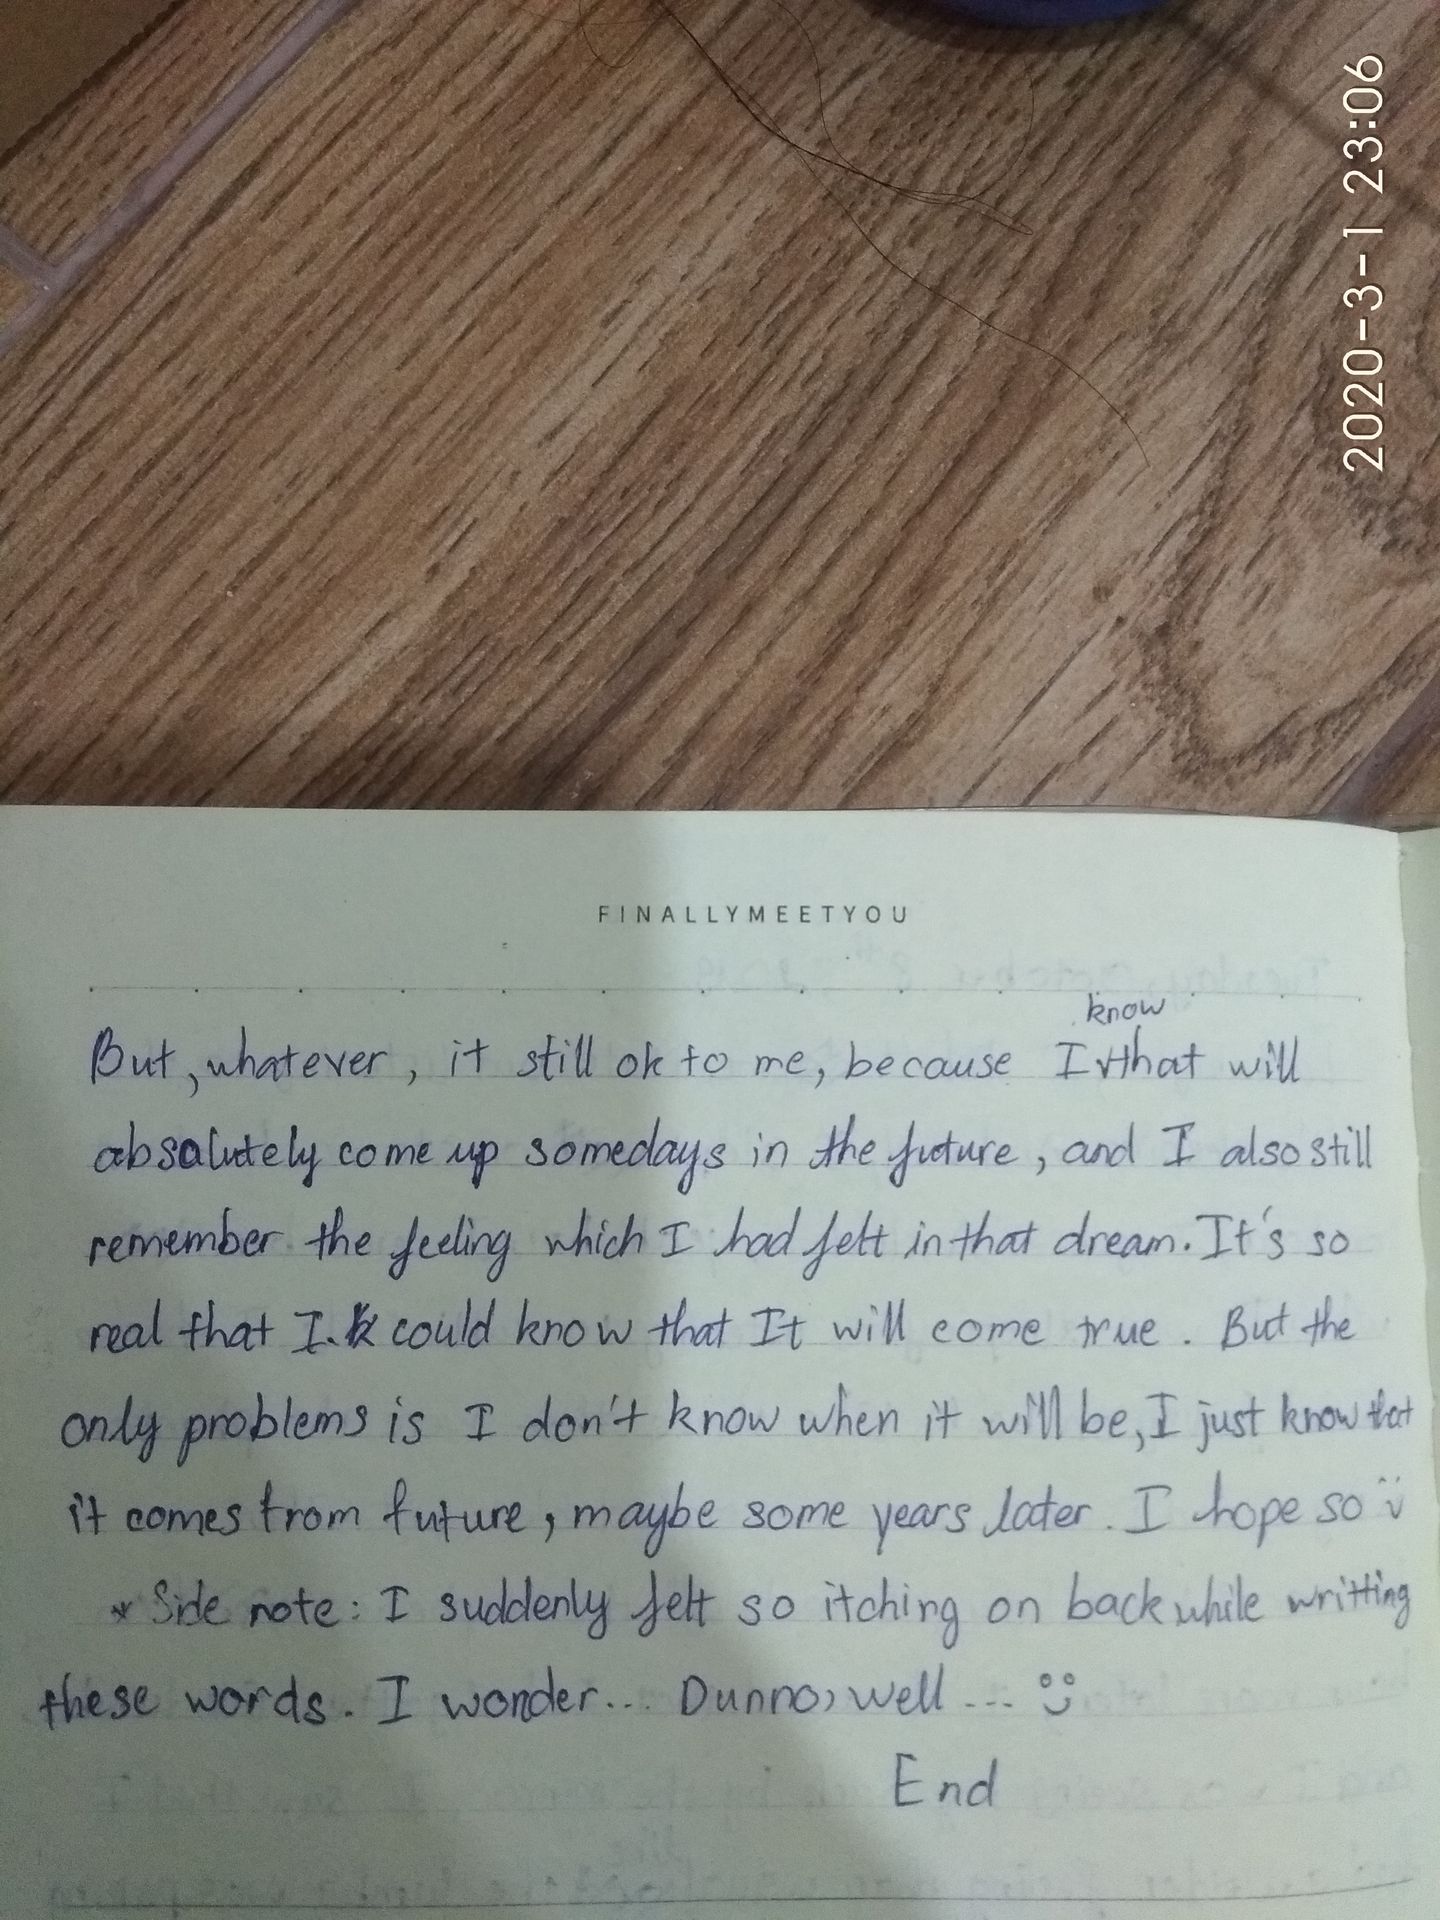 2020-3-1 23:06
FINALLYMEETYOU
know
But, whatever, it still ok to me, because I that will
absolutely come up somedays in the future, and I also still
remember the feeling which I had felt in that dream. It's so
real that I could know that It will come true. But the
only problems is I don't know when it will be, I just know that
it comes from future, maybe some years later. I hope so
* Side note: I suddenly felt so itching on back while writting
these words. I wonder... Dunno, well ...
End